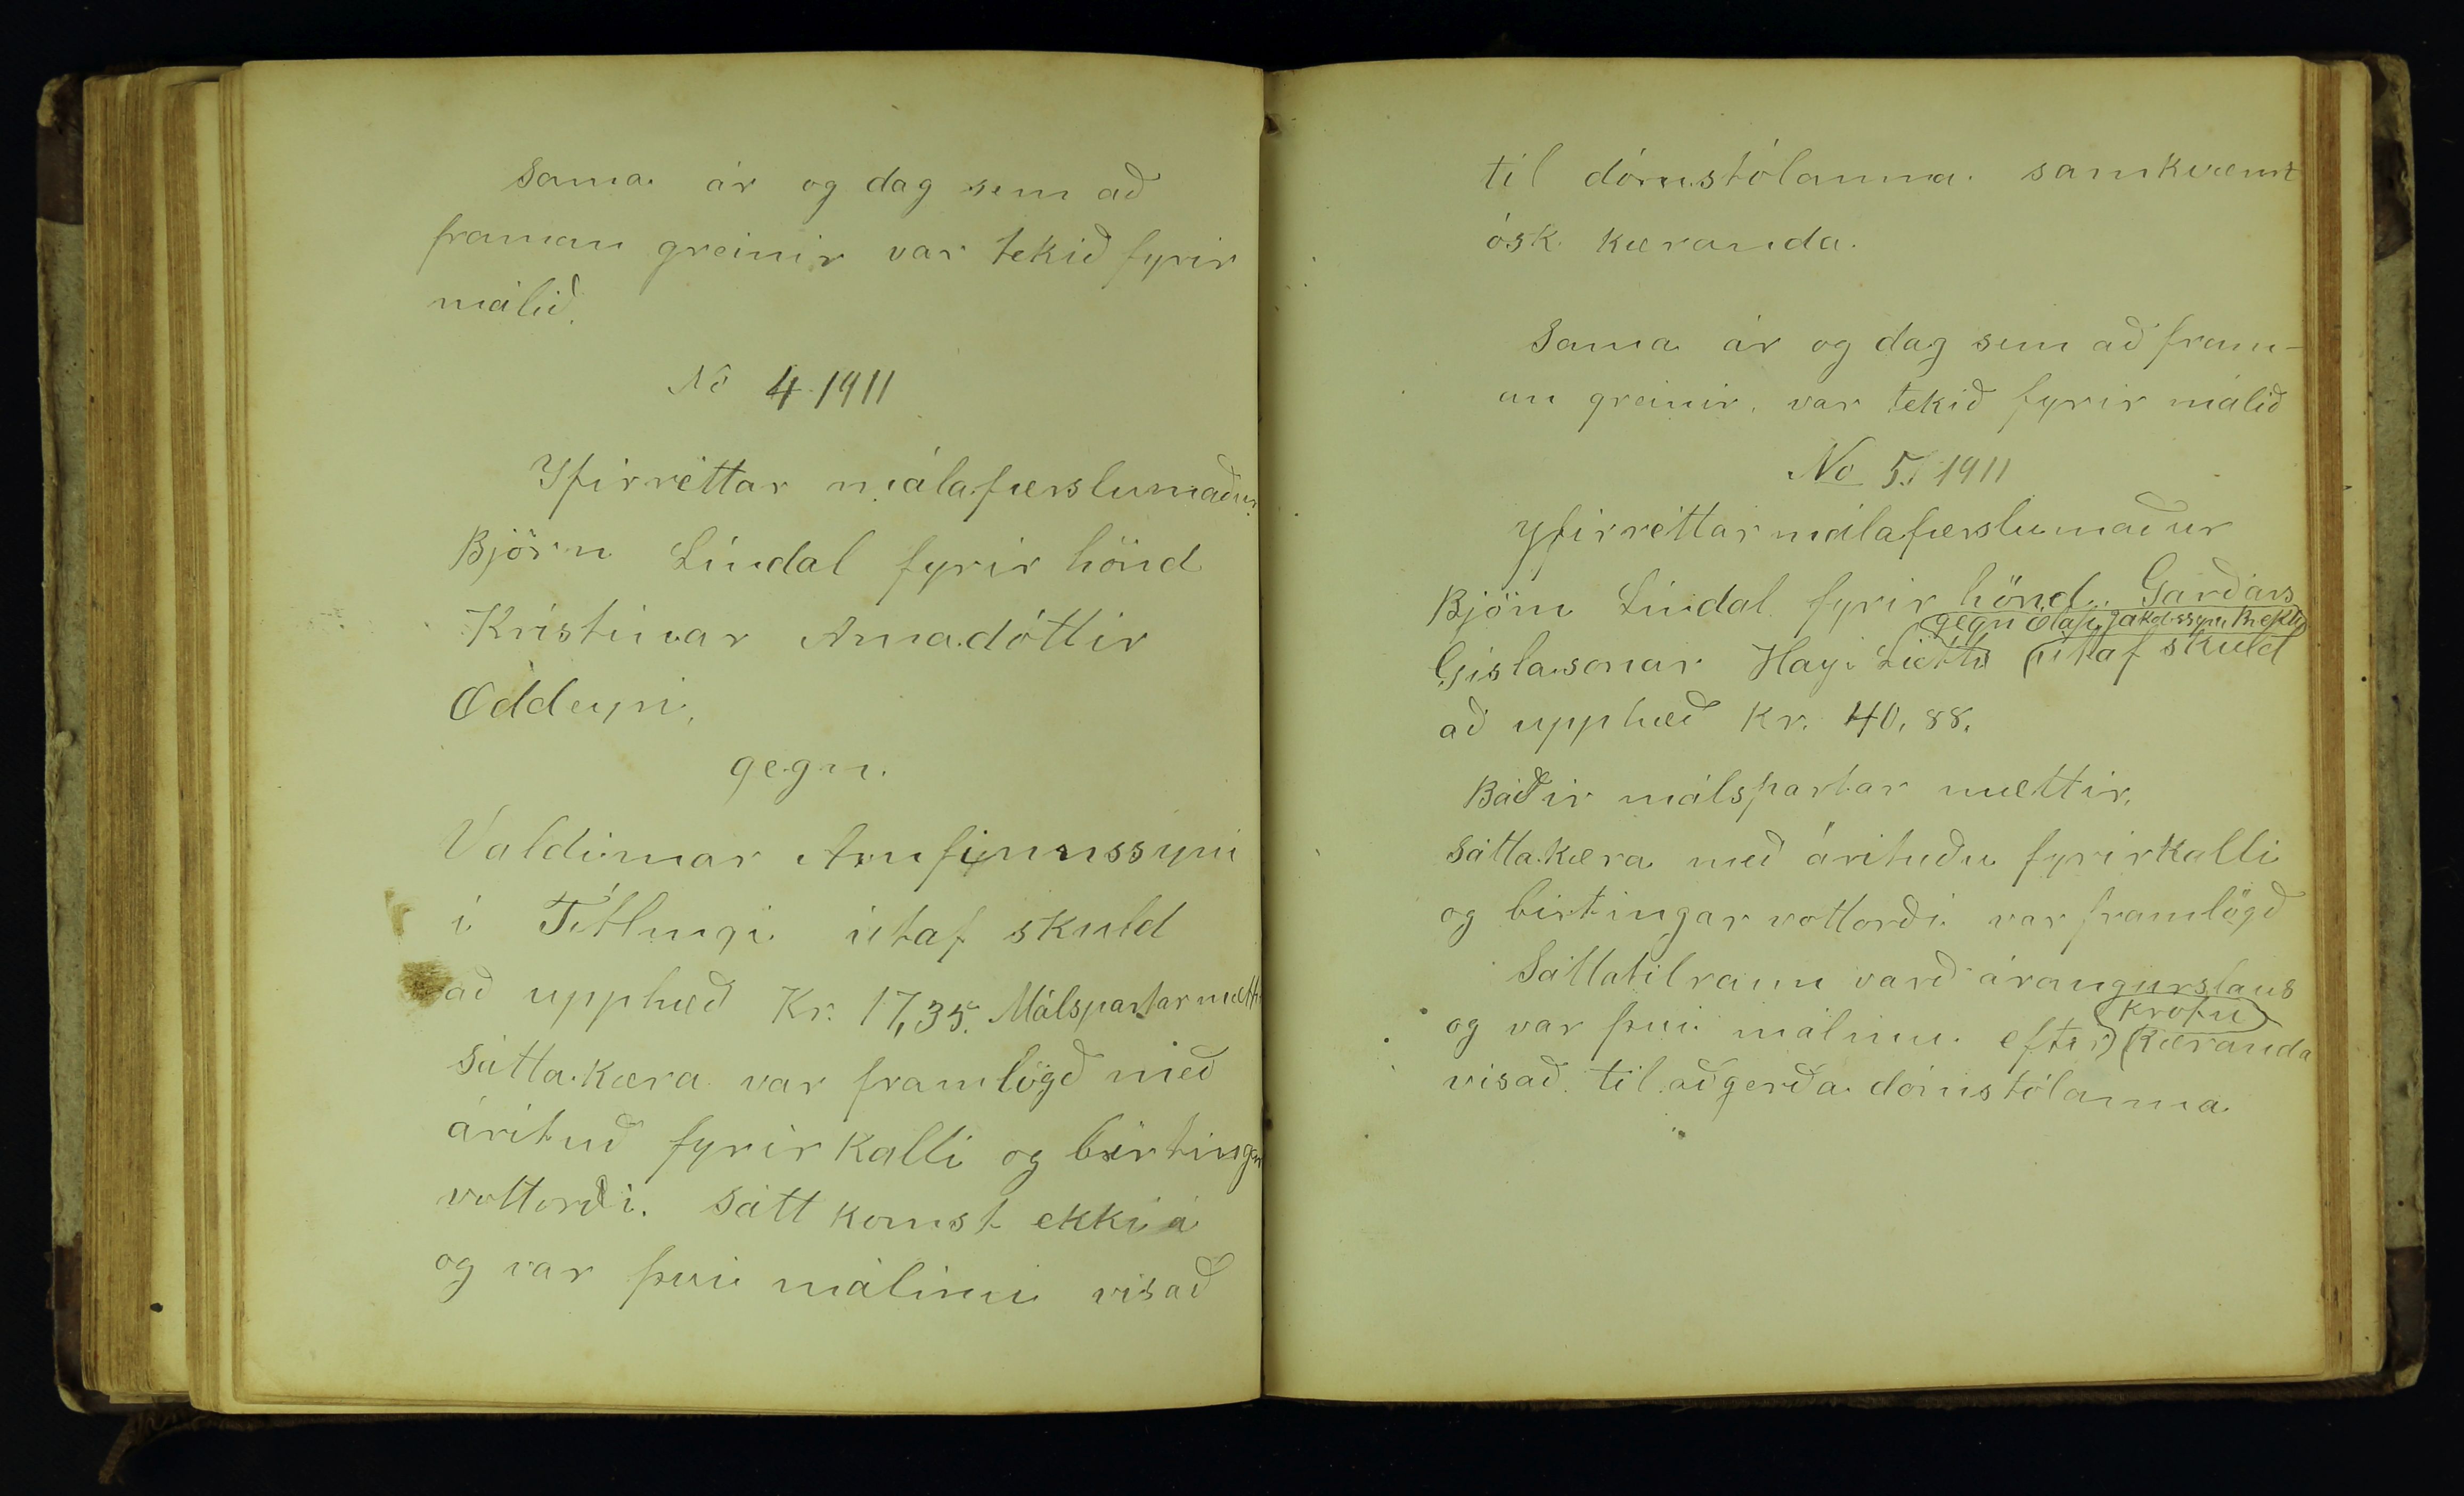 Sama ár og dag sem að
framan greinir var tekið fyrir
málið.
No 4. 1911
Yfirréttar málafærslumaður
Björn Líndal fyrir hönd
Kristínar Arnadóttir
Oddeyri,
gegn.
Valdimar Arnfinnssyni
í Titlingi útaf skuld
að upphæð Kr. 17,35. Málspartar mætti
Sáttakæra var framlögð með
árituð fyrirkalli og birtingar
vottorði. Sátt komst ekki á
og var því málinu visað
til dómstólanna samkvæmt
ósk kæranda.
Sama ár og dag sem að fram-
an greinir, var tekið fyrir málið
No 5. 1911
Yfirréttarmálafærslumaður
Björn Líndal fyrir hönd Garðars
gegn Olafi Jakobssyni
Gislasonar útaf skuld
að upphæð Kr. 40,88.
Báðir málspartar mættir,
Sáttakæra með árituðu fyrirkalli
og birtingar vottorði var framlögð
Sáttatilraun varð árangurslaus
kröfu
og var því málinu eftir kæranda
visað til aðgerða dómstólanna